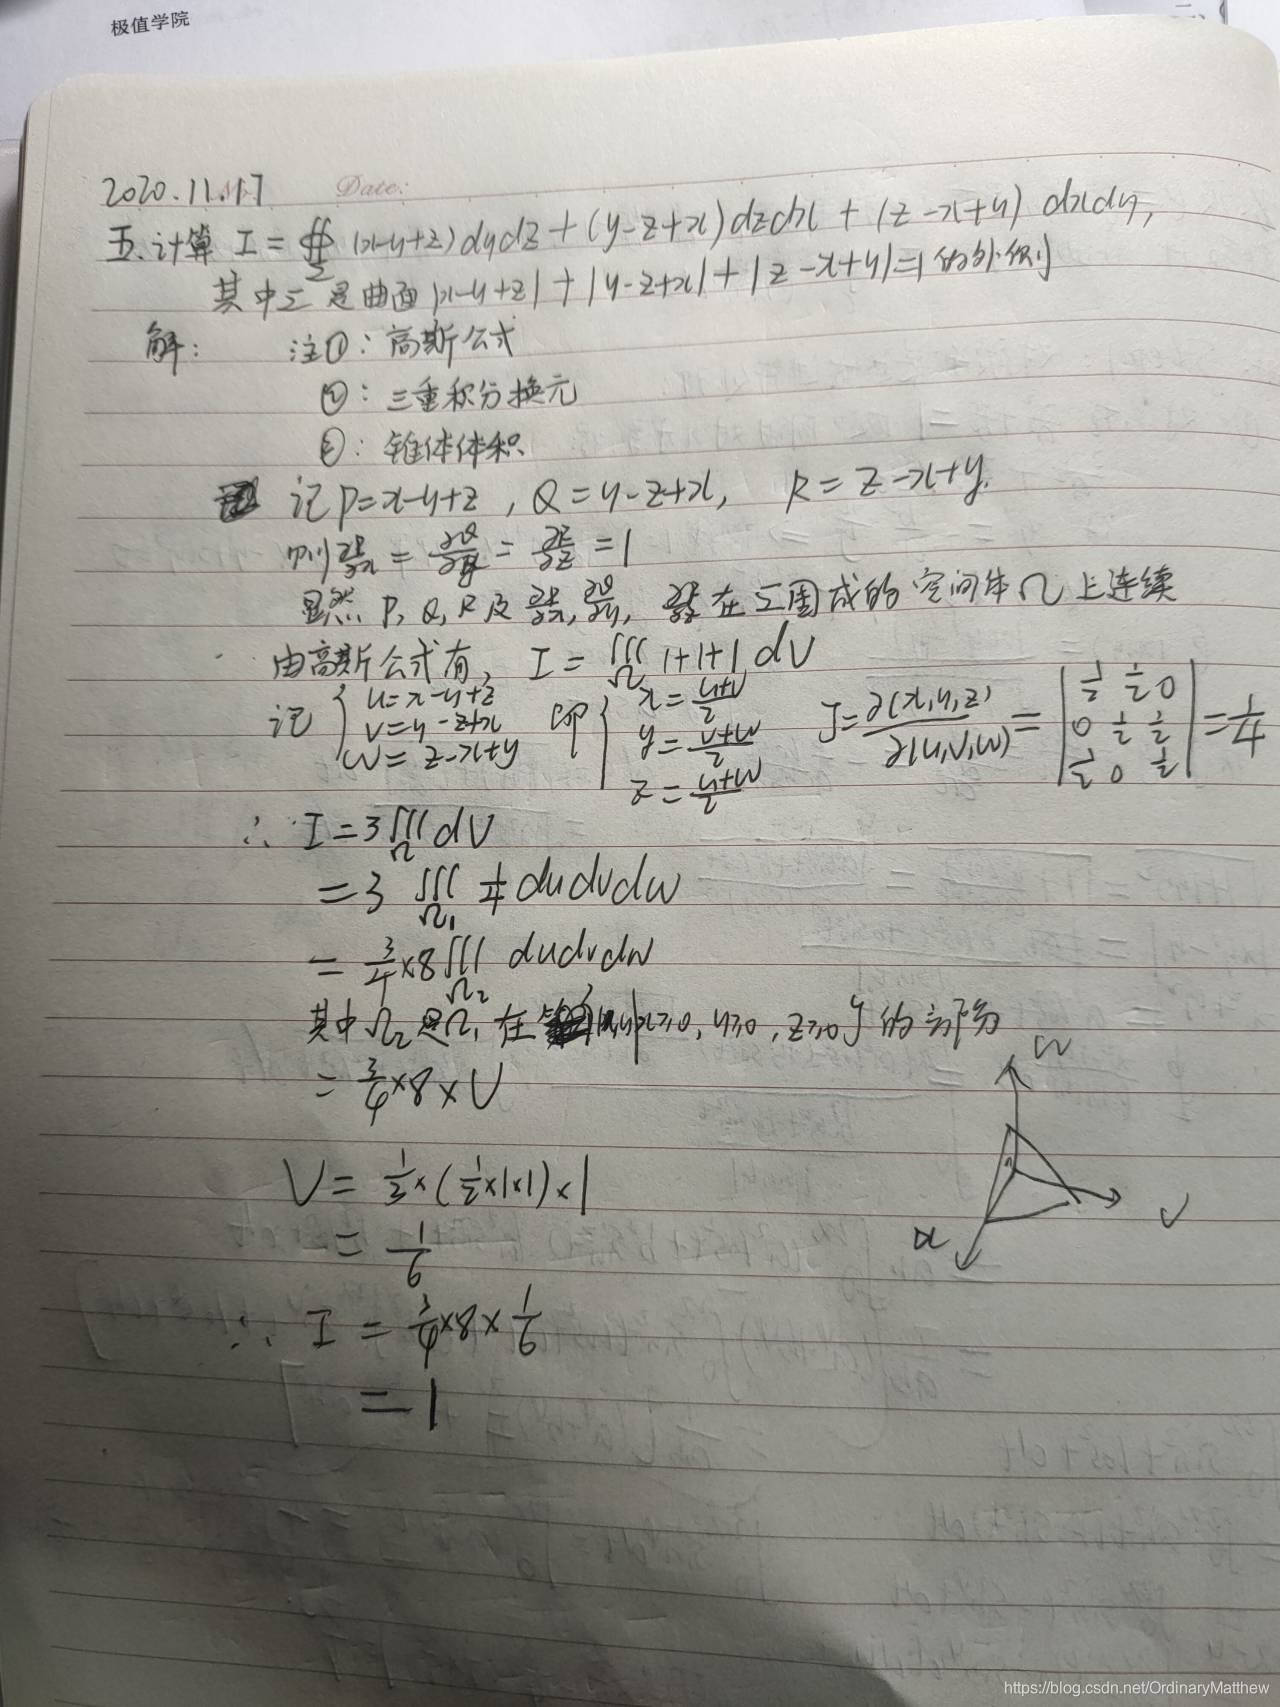 极值学院
2020.11.17 Date:
五.计算 I = ∯Σ (x-y+z)dydz + (y-z+x)dzdx + (z-x+y) dxdy,
其中Σ是曲面|x-y+z| + |y-z+x| + |z-x+y|=1的外侧
解: 注①: 高斯公式
②: 三重积分换元
③: 锥体体积
记P=x-y+z, Q=y-z+x, R=z-x+y.
则 ∂P/∂x = ∂Q/∂y = ∂R/∂z = 1
显然 P, Q, R 及 ∂P/∂x, ∂Q/∂y, ∂R/∂z 在Σ围成的空间体Ω上连续
由高斯公式有, I = ∭Ω 1+1+1 dV
记 { u=x-y+z, v=y-z+x, w=z-x+y 即 { x=(u+v)/2, y=(v+w)/2, z=(u+w)/2 J=∂(x,y,z)/∂(u,v,w) = |1/2 1/2 0; 0 1/2 1/2; 1/2 0 1/2| = 1/4
∴ I = 3∭Ω dV
= 3 ∭Ω₁ 1/4 dudvdw
= 3/4×8∭Ω₂ dudvdw
其中Ω₂是Ω₁在 x≥0, y≥0, z≥0} 的部分
= 3/4×8×V
V = 1/3×(1/2×1×1)×1
= 1/6
∴ I = 3/4×8×1/6
= 1
w
v
https://blog.csdn.net/OrdinaryMatthew